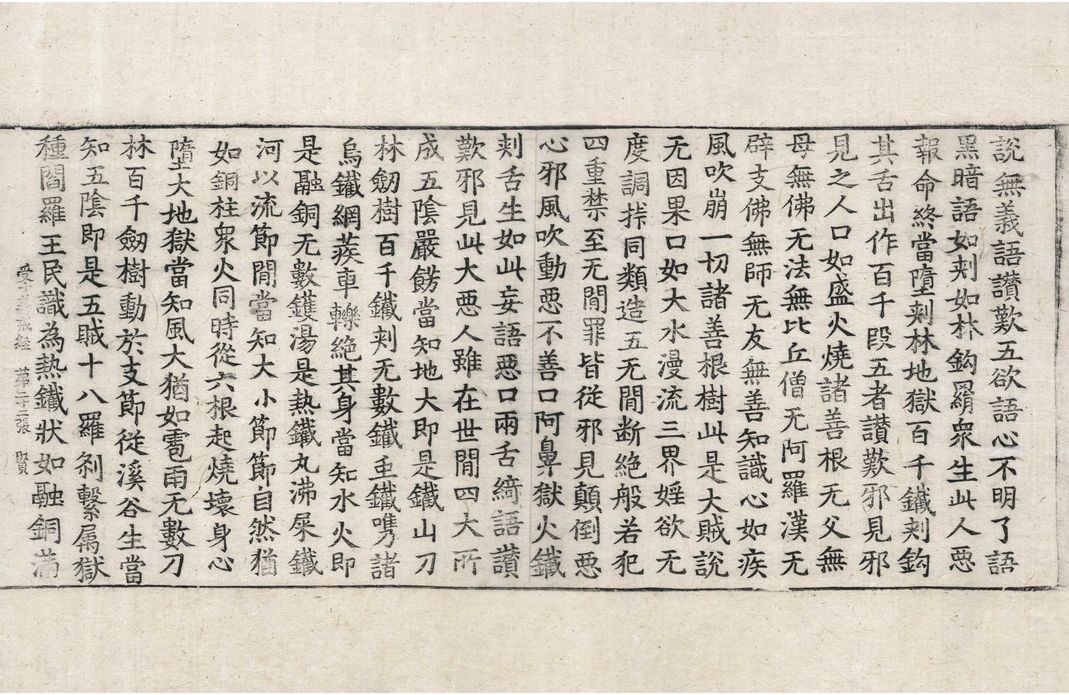 說無義語讃歎五欲語心不明了語
黑暗語如刾如林鈎羂衆生此人惡
報命終當墮刾林地獄百千鐵刾鈎
其舌出作百千段五者讃歎邪見邪
見之人口如盛火燒諸善根无父無
母無佛无法無比丘僧无阿羅漢无
辟支佛無師无友無善知識心如疾
風吹崩一切諸善根樹此是大賊說
无因果口如大水漫流三界婬欲无
度調挊同類造五无閒断絶般若犯
四重禁至无閒罪皆從邪見顛倒惡
心邪風吹動惡不善口阿鼻獄火鐵
刾舌生如此妄語惡口兩舌綺語讃
歎邪見此大惡人雖在世閒四大所
成五陰嚴餝當知地大即是鐵山刀
林劒樹百千鐵刾无數鐵䖝鐵㗱諸
烏鐵網蒺車轢絶其身當知水火即
是融銅无數鑊湯是熱鐵丸沸屎鐵
河以流節閒當知大小節節自然猶
如銅柱衆火同時從六根起燒壞身心
墮大地獄當知風大猶如雹雨无數刀
林百千劒樹動於支節從溪谷生當
知五陰即是五賊十八羅剎繫屬獄
種閻羅王民識為熱鐵狀如融銅滿
經 第二十二張 賢